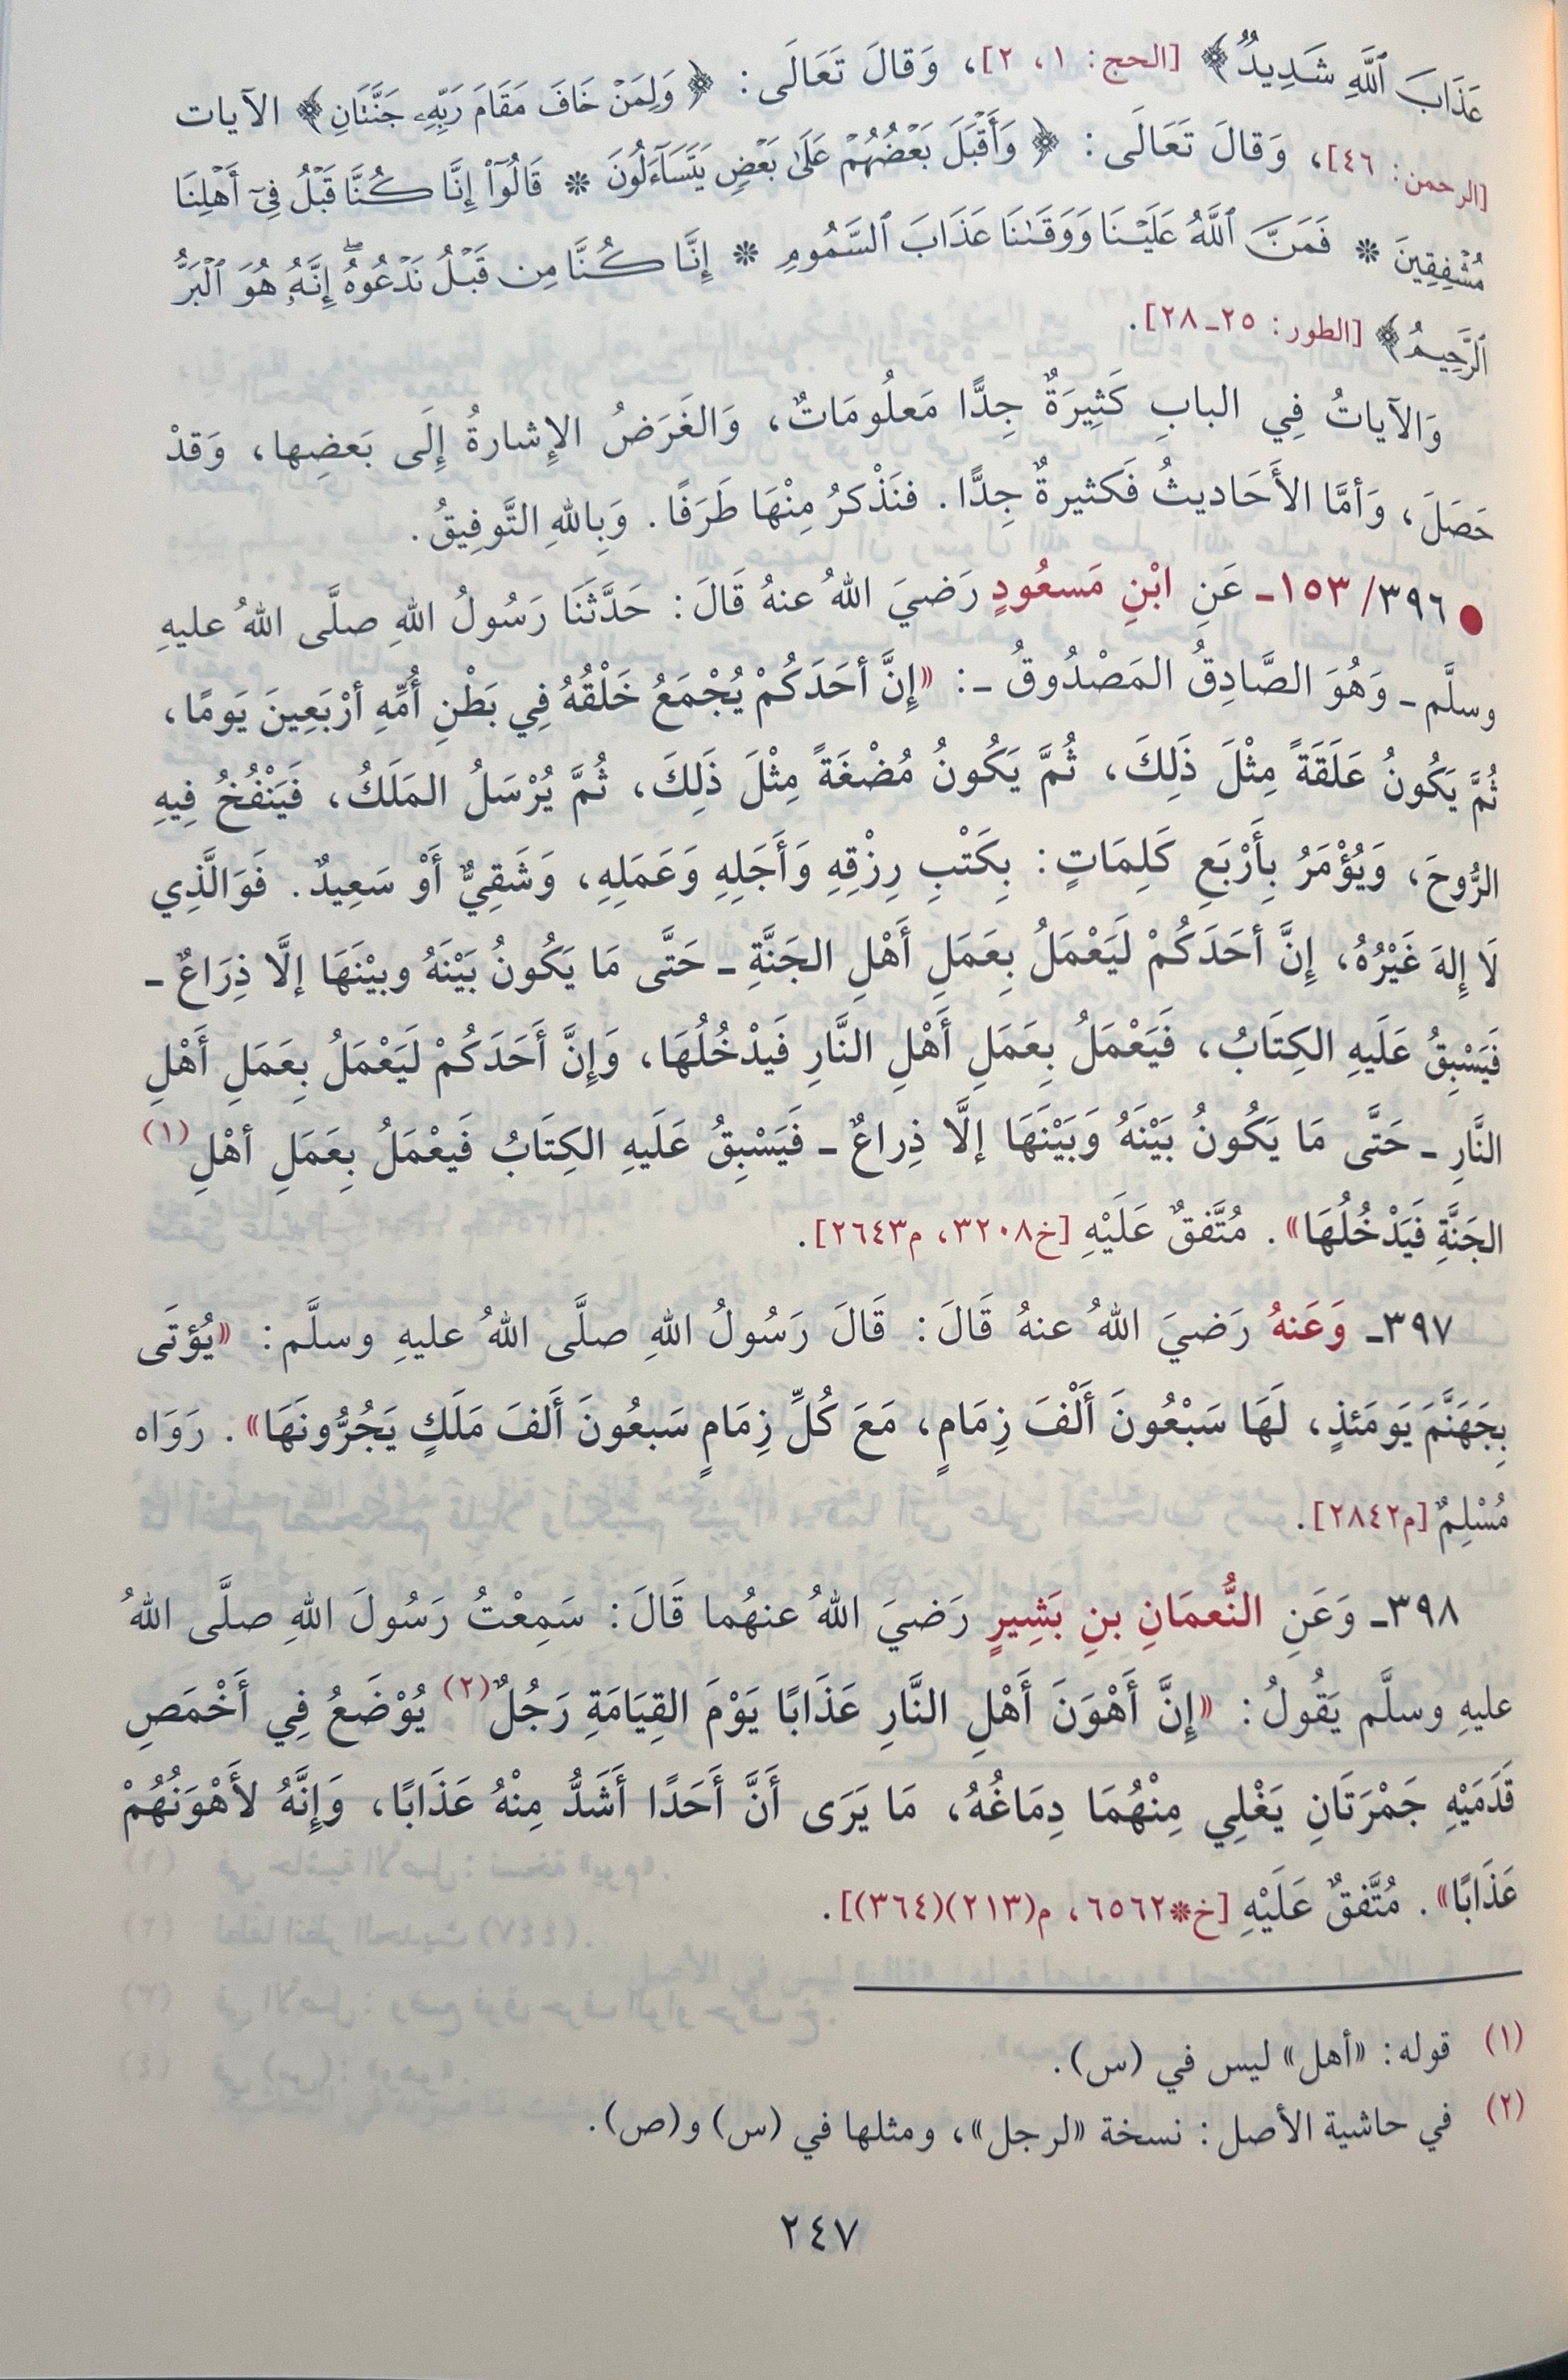 عَذَابَ ٱللَّهِ شَدِيدٌ﴾ [الحج: ١، ٢]، وَقالَ تَعَالَى: ﴿وَلِمَنْ خَافَ مَقَامَ رَبِّهِۦ جَنَّتَانِ﴾ الآيات
[الرحمن: ٤٦]، وَقالَ تَعَالَى: ﴿وَأَقْبَلَ بَعْضُهُمْ عَلَىٰ بَعْضٍ يَتَسَآءَلُونَ * قَالُوٓا۟ إِنَّا كُنَّا قَبْلُ فِىٓ أَهْلِنَا
مُشْفِقِينَ * فَمَنَّ ٱللَّهُ عَلَيْنَا وَوَقَىٰنَا عَذَابَ ٱلسَّمُومِ * إِنَّا كُنَّا مِن قَبْلُ نَدْعُوهُ ۖ إِنَّهُۥ هُوَ ٱلْبَرُّ
ٱلرَّحِيمُ﴾ [الطور: ٢٥ـ٢٨].
وَالآياتُ فِي البابِ كَثِيرَةٌ جِدًّا مَعلُومَاتٌ، وَالغَرَضُ الإِشارةُ إِلَى بَعضِها، وَقدْ
حَصَلَ، وَأمَّا الأَحَاديثُ فَكثيرةٌ جِدًّا. فنَذْكرُ مِنْهَا طَرَفًا. وَبِاللهِ التَّوفِيقُ.
● ٣٩٦/ ١٥٣ـ عَنِ ابْنِ مَسعُودٍ رَضيَ اللهُ عنهُ قَالَ: حَدَّثَنَا رَسُولُ اللهِ صلَّى اللهُ عليهِ
وسلَّم ـ وَهُوَ الصَّادِقُ المَصْدُوقُ ـ: «إِنَّ أحَدَكُمْ يُجْمَعُ خَلْقُهُ فِي بَطْنِ أُمِّهِ أرْبَعِينَ يَومًا،
ثُمَّ يَكُونُ عَلَقَةً مِثْلَ ذَلِكَ، ثُمَّ يَكُونُ مُضْغَةً مِثْلَ ذَلِكَ، ثُمَّ يُرْسَلُ المَلَكُ، فَيَنْفُخُ فِيهِ
الرُّوحَ، وَيُؤْمَرُ بِأَرْبَعِ كَلِمَاتٍ: بِكَتْبِ رِزْقِهِ وَأَجَلِهِ وَعَمَلِهِ، وَشَقِيٌّ أَوْ سَعِيدٌ. فَوَالَّذِي
لَا إِلهَ غَيْرُهُ، إِنَّ أحَدَكُمْ لَيَعْمَلُ بِعَمَلِ أَهْلِ الجَنَّةِ ـ حَتَّى مَا يَكُونُ بَيْنَهُ وبيْنَهَا إلَّا ذِرَاعٌ ـ
فَيَسْبِقُ عَلَيهِ الكِتَابُ، فَيَعْمَلُ بِعَمَلِ أَهْلِ النَّارِ فَيدْخُلُهَا، وَإِنَّ أَحَدَكُمْ لَيَعْمَلُ بِعَمَلِ أَهْلِ
النَّارِ ـ حَتَّى مَا يَكُونُ بَيْنَهُ وَبَيْنَهَا إلَّا ذِراعٌ ـ فَيَسْبِقُ عَلَيهِ الكِتَابُ فَيعْمَلُ بِعَمَلِ أهْلِ (١)
الجَنَّةِ فَيَدْخُلُهَا». مُتَّفقٌ عَلَيْهِ [خ٣٢٠٨، م٢٦٤٣].
٣٩٧ـ وَعَنهُ رَضيَ اللهُ عنهُ قَالَ: قَالَ رَسُولُ اللهِ صلَّى اللهُ عليهِ وسلَّم: «يُؤتَى
بِجَهَنَّمَ يَومَئذٍ، لَهَا سَبْعُونَ أَلْفَ زِمَامٍ، مَعَ كُلِّ زِمَامٍ سَبعُونَ أَلفَ مَلَكٍ يَجُرُّونَهَا». رَوَاه
مُسْلِمٌ [م٢٨٤٢].
٣٩٨ـ وَعَنِ النُّعمَانِ بنِ بَشِيرٍ رَضيَ اللهُ عنهُما قَالَ: سَمِعْتُ رَسُولَ اللهِ صلَّى اللهُ
عليهِ وسلَّم يَقُولُ: «إِنَّ أَهْوَنَ أَهْلِ النَّارِ عَذَابًا يَوْمَ القِيَامَةِ رَجُلٌ (٢) يُوْضَعُ فِي أَخْمَصِ
قَدَمَيْهِ جَمْرَتَانِ يَغْلِي مِنْهُمَا دِمَاغُهُ، مَا يَرَى أَنَّ أَحَدًا أَشَدُّ مِنْهُ عَذَابًا، وَإِنَّهُ لأَهْوَنُهُمْ
عَذَابًا». مُتَّفقٌ عَلَيْهِ [خ*٦٥٦٢، م(٢١٣)(٣٦٤)].
(١) قوله: «أهل» ليس في (س).
(٢) في حاشية الأصل: نسخة «لرجل»، ومثلها في (س) و(ص).
٢٤٧